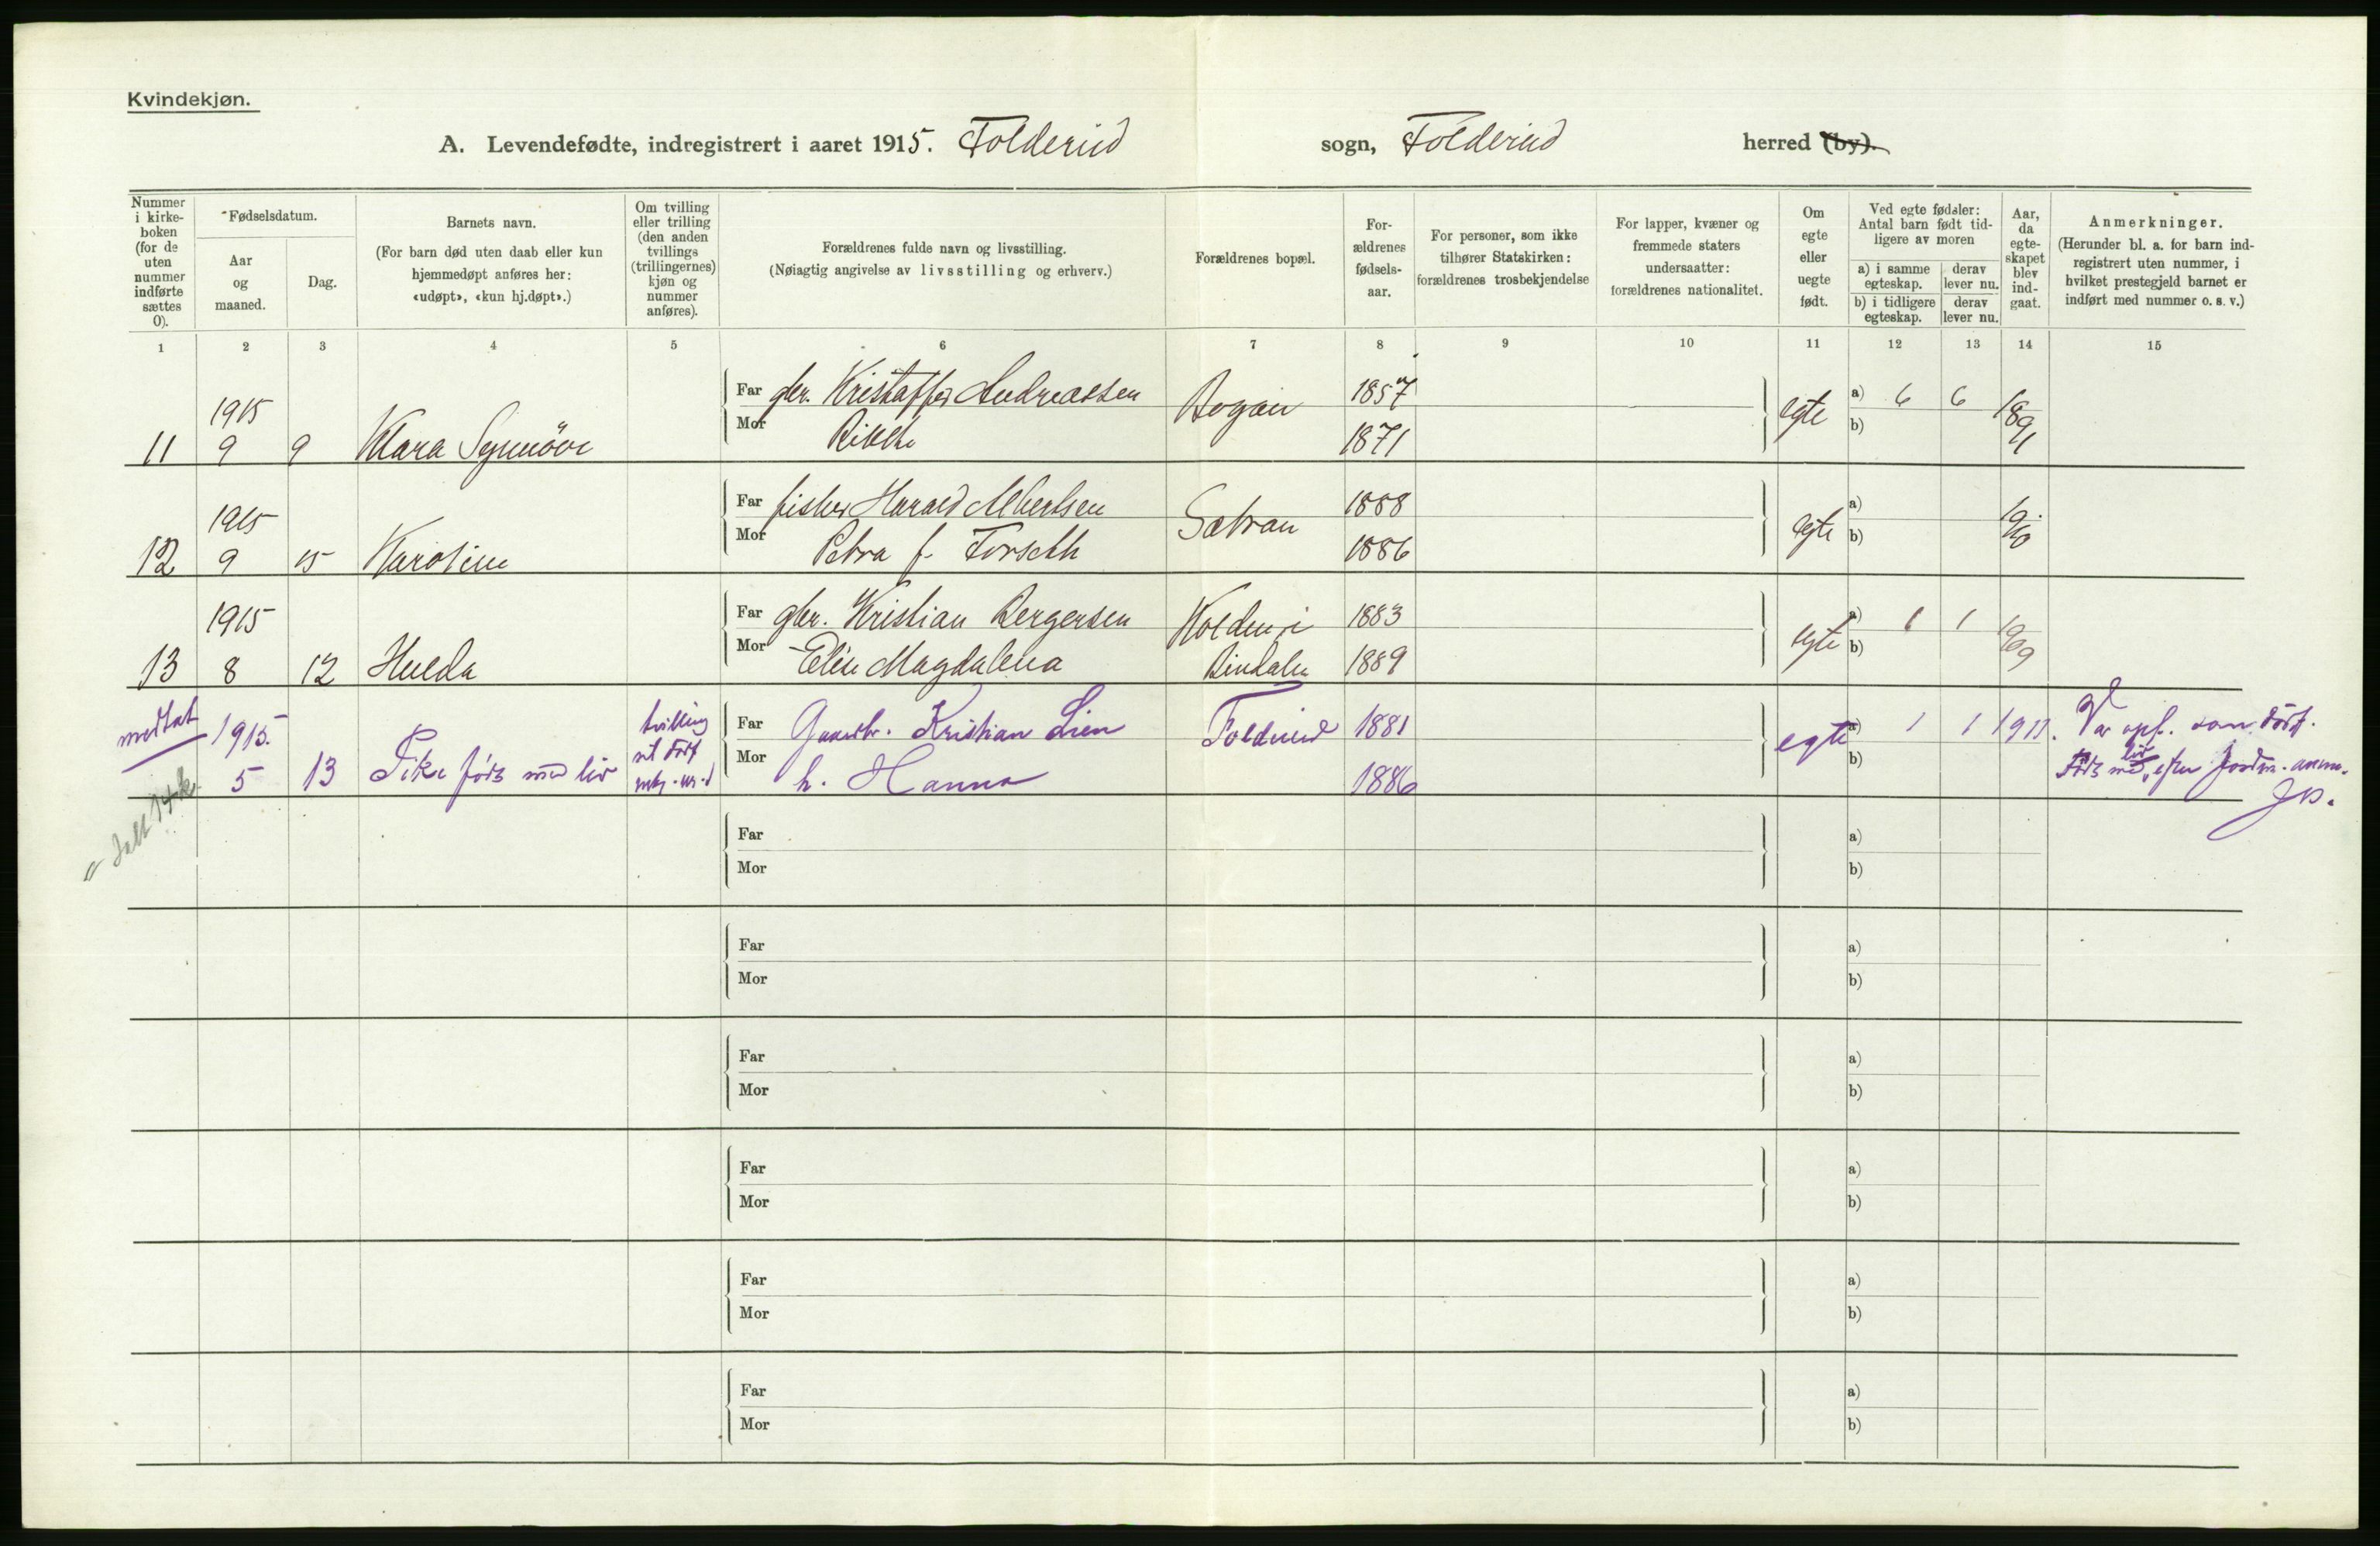 Kvindekjøn.
A. Levendefødte, indregistrert i aaret 1915. Foldereid sogn, Foldereid herred (by).
Nummer i kirkeboken (for de uten nummer indførte sættes 0).
Fødselsdatum.
Aar og maaned.
Dag.
Barnets navn.
(For barn død uten daab eller kun hjemmedøpt anføres her: «udøpt», «kun hj.døpt».)
Om tvilling eller trilling (den anden tvillings (trillingernes) kjøn og nummer anføres).
Forældrenes fulde navn og livsstilling.
(Nøiagtig angivelse av livsstilling og erhverv.)
Forældrenes bopæl.
Forældrenes fødselsaar.
For personer, som ikke tilhører Statskirken: forældrenes trosbekjendelse
For lapper, kvæner og fremmede staters undersaatter: forældrenes nationalitet.
Om egte eller uegte født.
Ved egte fødsler: Antal barn født tidligere av moren
a) i samme egteskap. derav lever nu.
b) i tidligere egteskap. derav lever nu.
Aar, da egteskapet blev indgaat.
Anmerkninger.
(Herunder bl. a. for barn indregistrert uten nummer, i hvilket prestegjeld barnet er indført med nummer o. s. v.)
1 2 3 4 5 6 7 8 9 10 11 12 13 14 15
1915
11 9 9 Klara Synnöve
Far gbr. Kristoffer Andreassen 1857
Mor Rikke 1871
egte a) 6 6 1891
b)
1915
12 9 15 Karoline
Far fisker Harald Albertsen Sætran 1888
Mor Petra f. Forseth 1886
egte a)
b) 1910
1915
13 8 12 Hulda
Far gbr. Kristian Bergersen Kolden i 1883
Mor Elin Magdalena Bindalen 1889
egte a) 1 1 1909
b)
medtat 1915.
5 13 Pike født med liv
tvilling
Far Gaardbr. Kristian Lien Foldereid 1881
Mor h. Hanna 1886
egte a) 1 1 1911.
b)
Var opf. som dödf.
Födt med liv, efter jordm. anm.
Far
Mor
a)
b)
Far
Mor
a)
b)
Far
Mor
a)
b)
Far
Mor
a)
b)
Far
Mor
a)
b)
Far
Mor
a)
b)